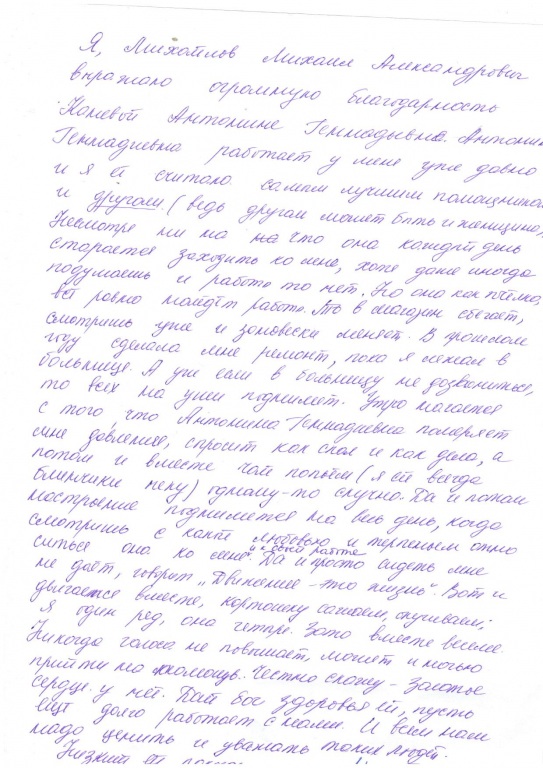 Я, Михайлов Михаил Александрович
выражаю огромную благодарность
Каневой Антонине Геннадьевне. Антонин
Геннадиевна работает у меня уже давно
и я её считаю самым лучшим помощником
и другом. (ведь другом может быть и женщина)
Несмотря ни на на что она каждый день
старается заходить ко мне, хотя даже иногда
подумаешь и работы то нет. Но она как пчёлка,
всё равно найдёт работу. То в магазин сбегает,
смотришь уже и занавески меняет. В прошлом
году сделала мне ремонт, пока я лежал в
больнице. А уже если в больницу не дозвониться,
то всех на уши поднимет. Утро начается
с того, что Антонина Геннадиевна померяет
мне давление, спросит как спал и как дела, а
потом и вместе чай попьём (я ей всегда
блинчики пеку) одному-то скучно. Да и потом
настроение поднимется на весь день, когда
смотришь с какой любовью и терпеньем отно
ситься она ко мне и к своей работе. Да и просто сидеть мне
не даёт, говорит „Движение - это жизнь". Вот и
двигаемся вместе, картошку сажаем, окучиваем;
Я один ряд, она четыре. Зато вместе веселе
Никогда голоса не повышает, может и ночью
прийти на помощь. Честно скажу - золотое
сердце у неё. Дай бог здоровья ей, пусть
ещё долго работает с нами. И всем нам
надо ценить и уважать таких людей.
Низкий ей